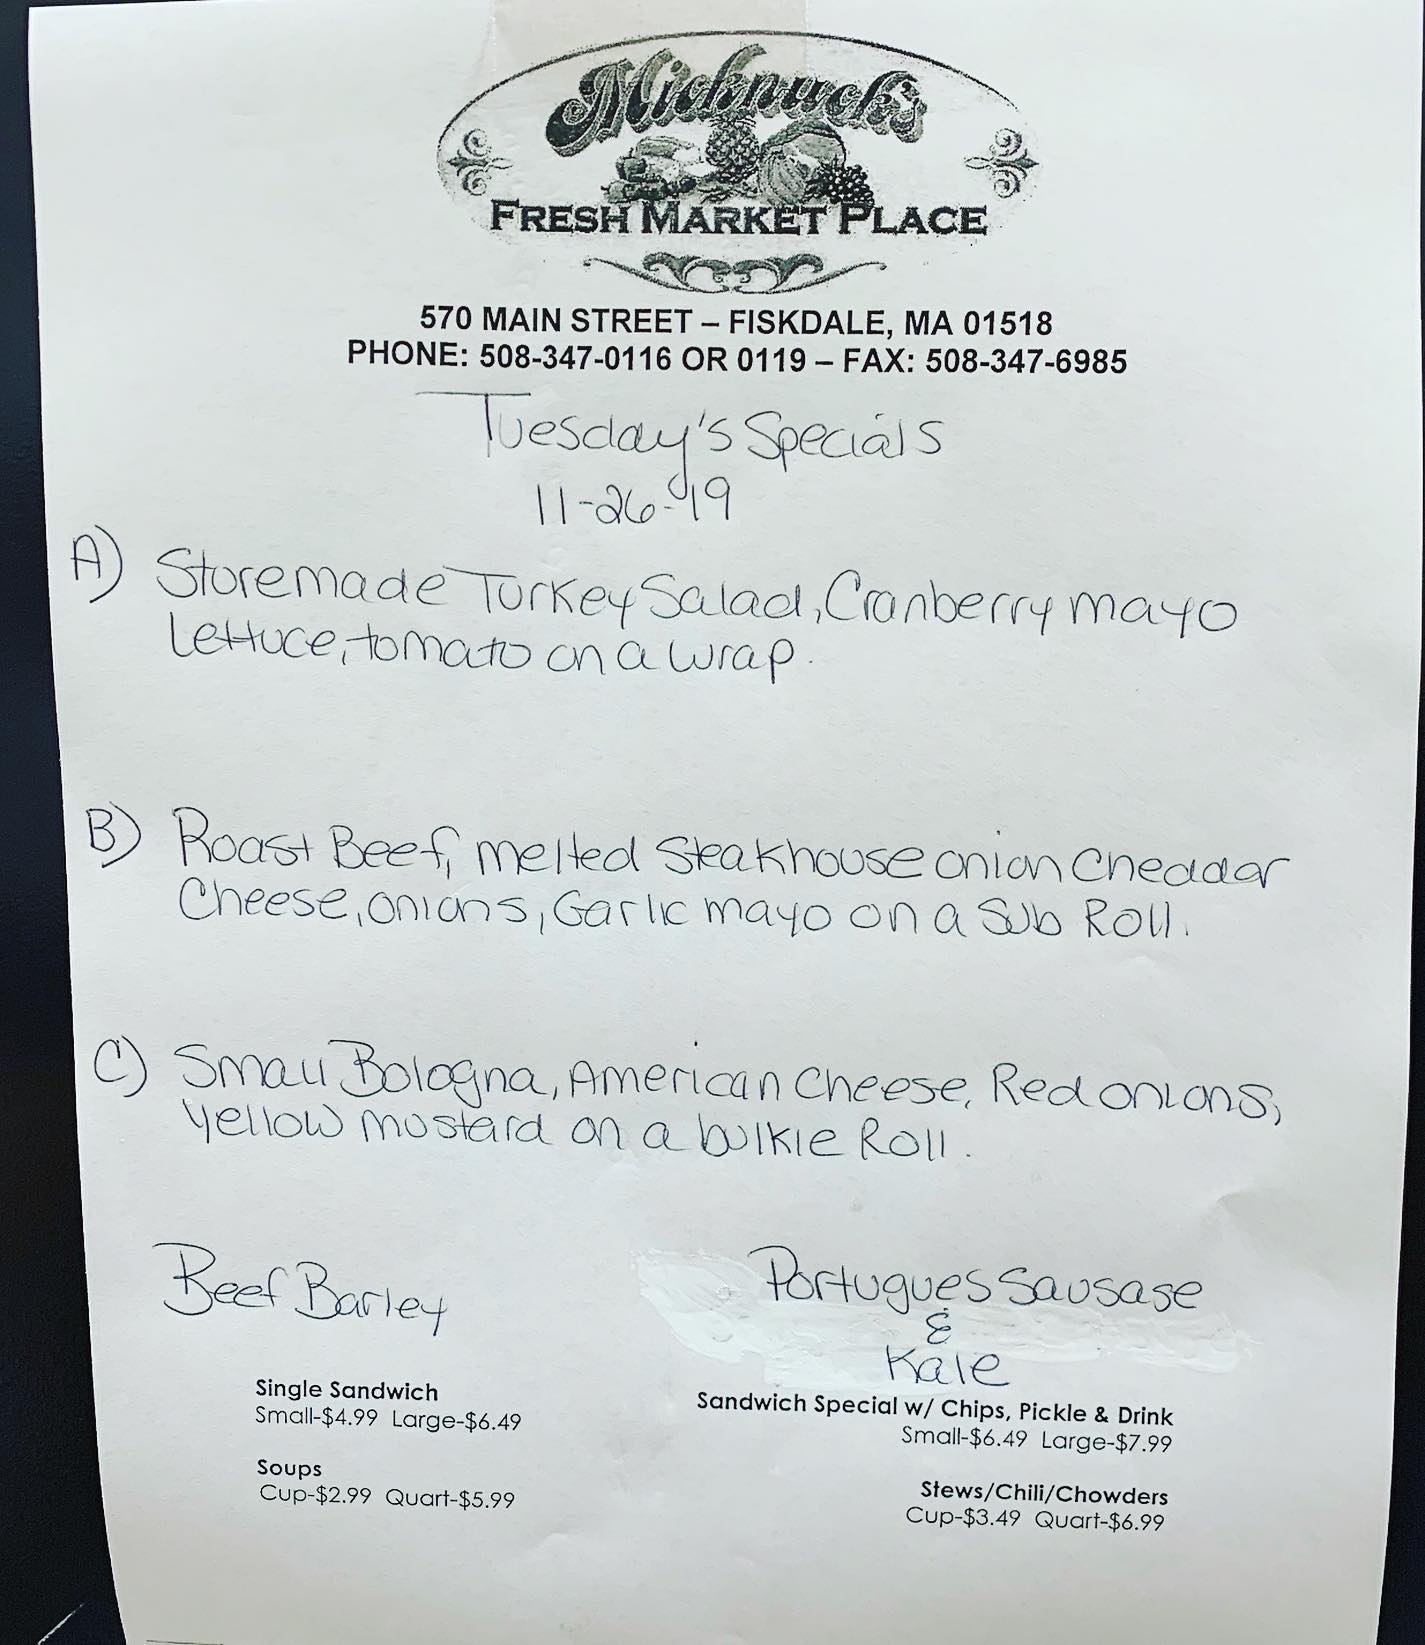 Micknuck's
FRESH MARKET PLACE
570 MAIN STREET – FISKDALE, MA 01518
PHONE: 508-347-0116 OR 0119 – FAX: 508-347-6985
Tuesday's Specials
11-26-19
A) Storemade Turkey Salad, Cranberry mayo
Lettuce, tomato on a wrap.
B) Roast Beef, melted Steakhouse onion Cheddar
Cheese, onions, Garlic mayo on a Sub Roll.
C) Small Bologna, American Cheese, Red onions,
Yellow mustard on a bulkie Roll.
Beef Barley
Portugues Sausase
&
Kale
Single Sandwich
Small-$4.99 Large-$6.49
Sandwich Special w/ Chips, Pickle & Drink
Small-$6.49 Large-$7.99
Soups
Cup-$2.99 Quart-$5.99
Stews/Chili/Chowders
Cup-$3.49 Quart-$6.99